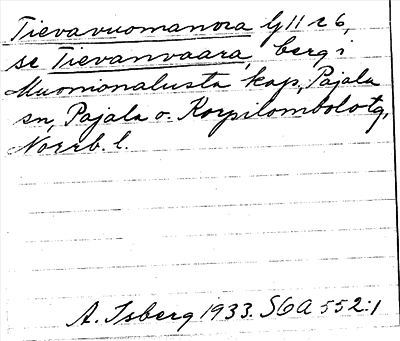 Tievavuomanova lg 11 c 6,
se Tievanvaara, berg i
Muonionalusta kap, Pajala
sn, Pajala o. Korpilombolo tg,
Norrb. l.
A. Isberg 1933. SGA 552:1